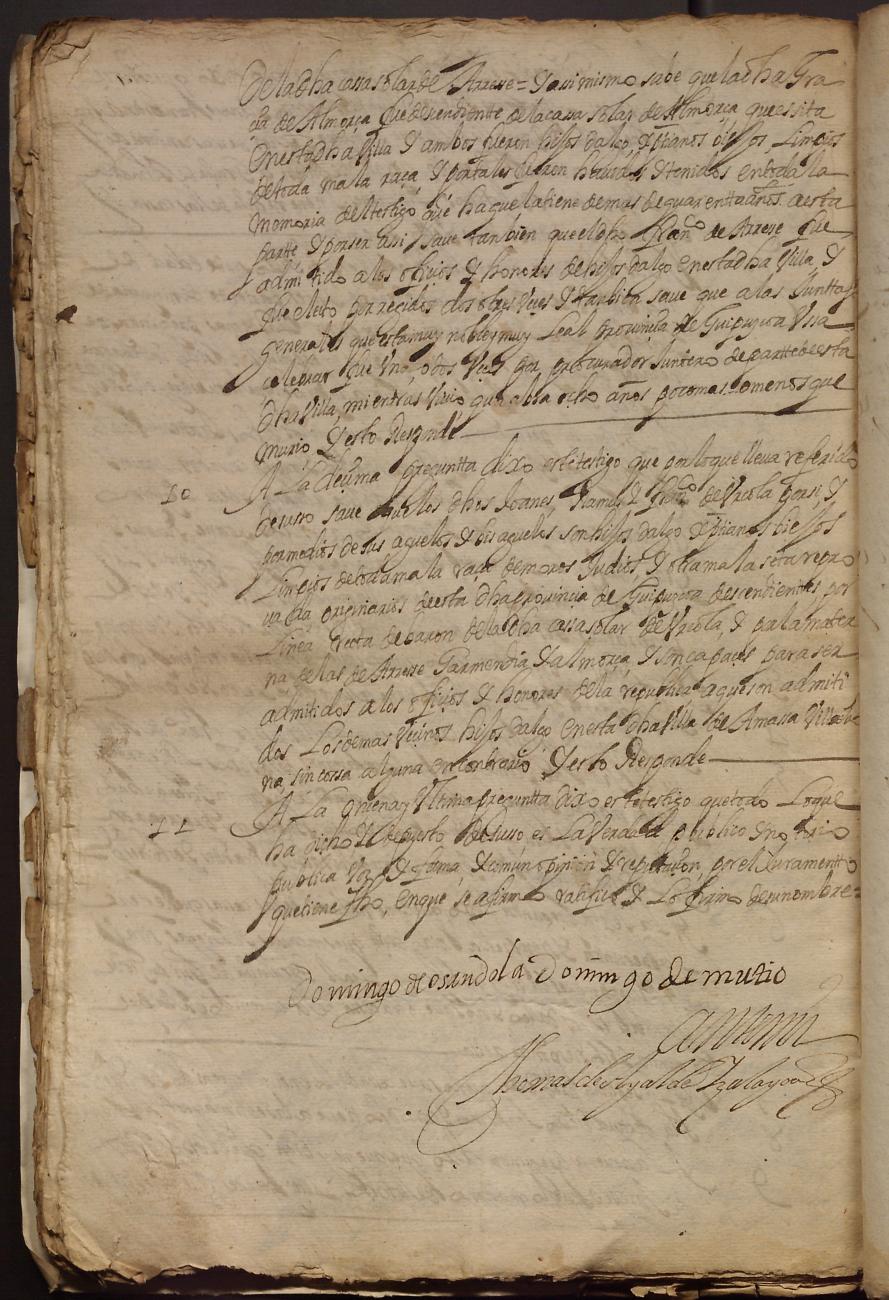 De la dha cassa solar de Arrese = Y asimismo sabe que la dha Gra
cia de Almorça fue descendientte de la casa solar de Almorça que essita
en esta dha Villa y ambos fueron hijos dalgo xptianos viejos Limpios
de toda mala raça y por tales fueron havidos y tenidos en toda la
memoria del testigo que ha que la tiene de mas de quarentta años a esta
partte y por ser assi save tambien que el dho Franco de Arrese fue
admitido a los ofiçios y honores de hijos dalgo en esta dha Villa y
fue eleito por rexidor dos o tres Veçes y tanbien save que a las Junttas
generales que esta muy noble y muy Leal provinçia de Guipuzcoa Ussa
celebrar fue Una, o dos Veçes por procurador Juntero de partte de esta
dha Villa, mientras Vivio que abra ocho años poco mas o menos que
murio Y esto Responde
10 A La deçima preguntta dixo este testigo que por lo que lleva referido
de suso save que los dhos Joanes, y franco de Urçola por si y
por medios de sus aguelos y bisaguelos son hijos dalgo xptianos viejos
Limpios de toda mala raça de moros Judios y otra mala seta repro
vada originarios de esta dha provinçia de Guipuzcoa descendientes por
Linea recta de baron de la dha cassa solar de Urçola, y por la mater
na de las de Arrese Garmendia y almorça y son capaçes para ser
admitidos a los ofiçios y honores de la republica a que son admiti
dos Los demas Veçinos hijos dalgo en esta dha Villa de Amasa Villabo
na sin cossa alguna en contrario Y esto Responde
11 A La onçena y Ultima preguntta dixo este testigo que todo Lo que
ha dicho y depuesto de suso es La Verdad publico y notorio
publica Voz y fama y comun opinion y reputaçion, por el Juramentto
que tiene fho, en que se afirmo ratifico y Lo firmo de su nombre =
Domingo de osindola Domingo de mutio
ante mi
Thomas de Ayalde Yzulayoa